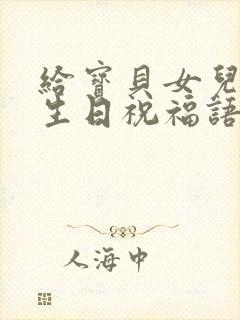 給寶貝女兒
生日祝福語
人海中